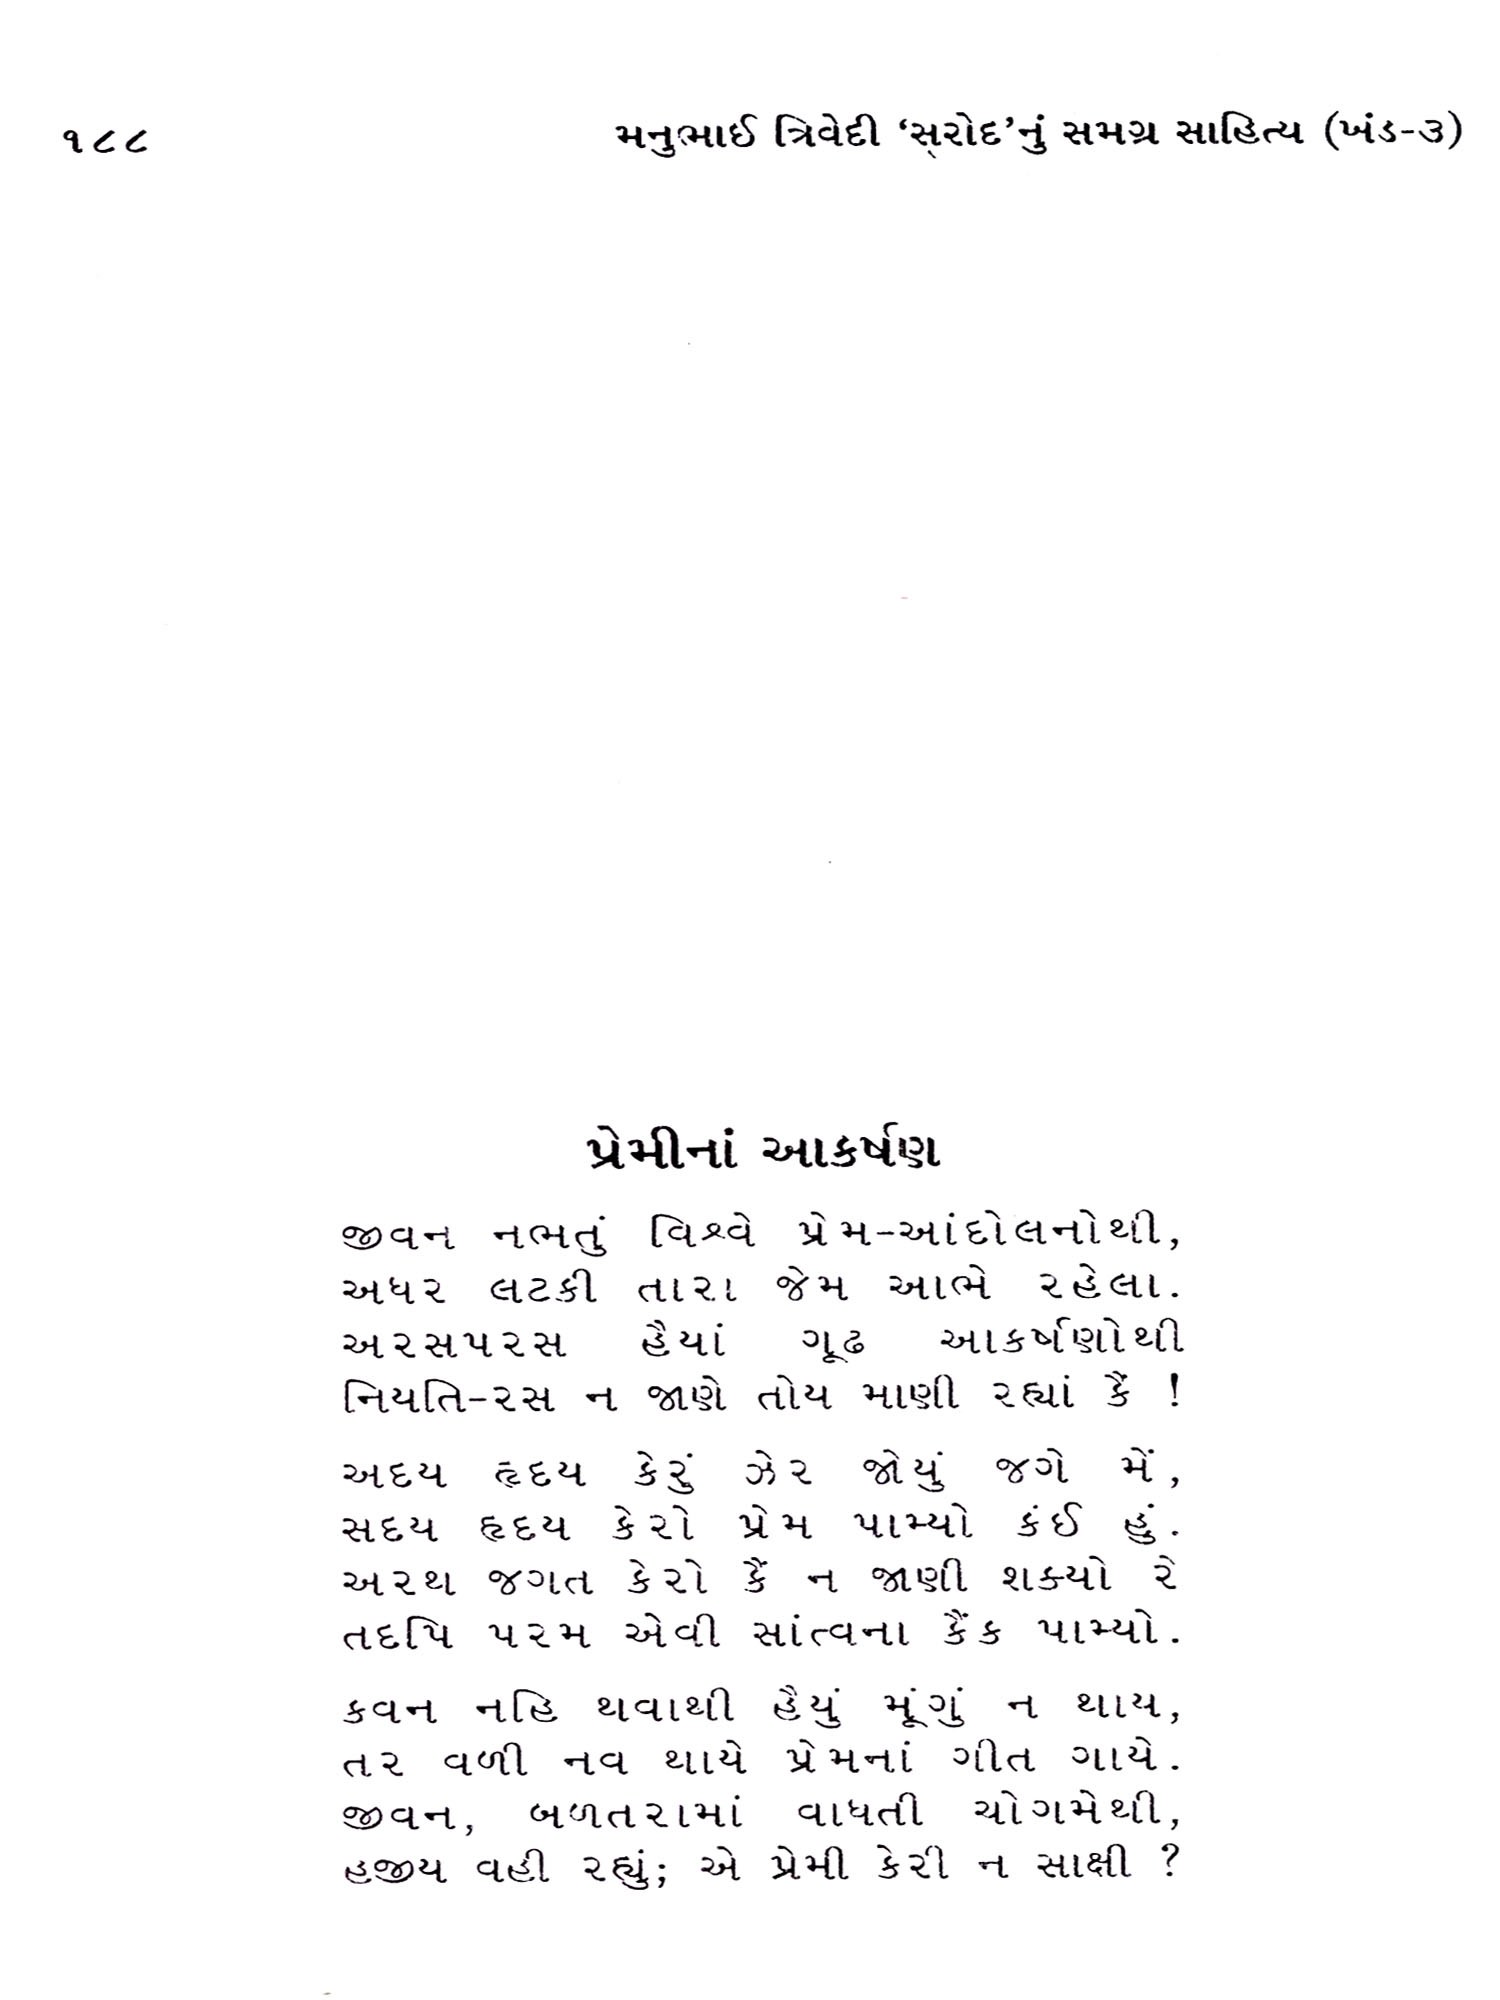 ૧૮૮ મનુભાઈ ત્રિવેદી ‘સ્રોદ’નું સમગ્ર સાહિત્ય (ખંડ-૩)
પ્રેમીનાં આકર્ષણ
જીવન નભતું વિશ્વે પ્રેમ-આંદોલનોથી,
અધર લટકી તારા જેમ આભે રહેલા.
અરસપરસ હૈયાં ગૂઢ આકર્ષણોથી
નિયતિ-રસ ન જાણે તોય માણી રહ્યાં કૈં !
અદય હૃદય કેરું ઝેર જોયું જગે મેં,
સદય હૃદય કેરો પ્રેમ પામ્યો કંઈ હું.
અરથ જગત કેરો કૈં ન જાણી શક્યો રે
તદપિ પરમ એવી સાંત્વના કૈંક પામ્યો.
કવન નહિ થવાથી હૈયું મૂંગું ન થાય,
તર વળી નવ થાયે પ્રેમનાં ગીત ગાયે.
જીવન, બળતરામાં વાધતી ચોગમેથી,
હજીય વહી રહ્યું; એ પ્રેમી કેરી ન સાક્ષી ?